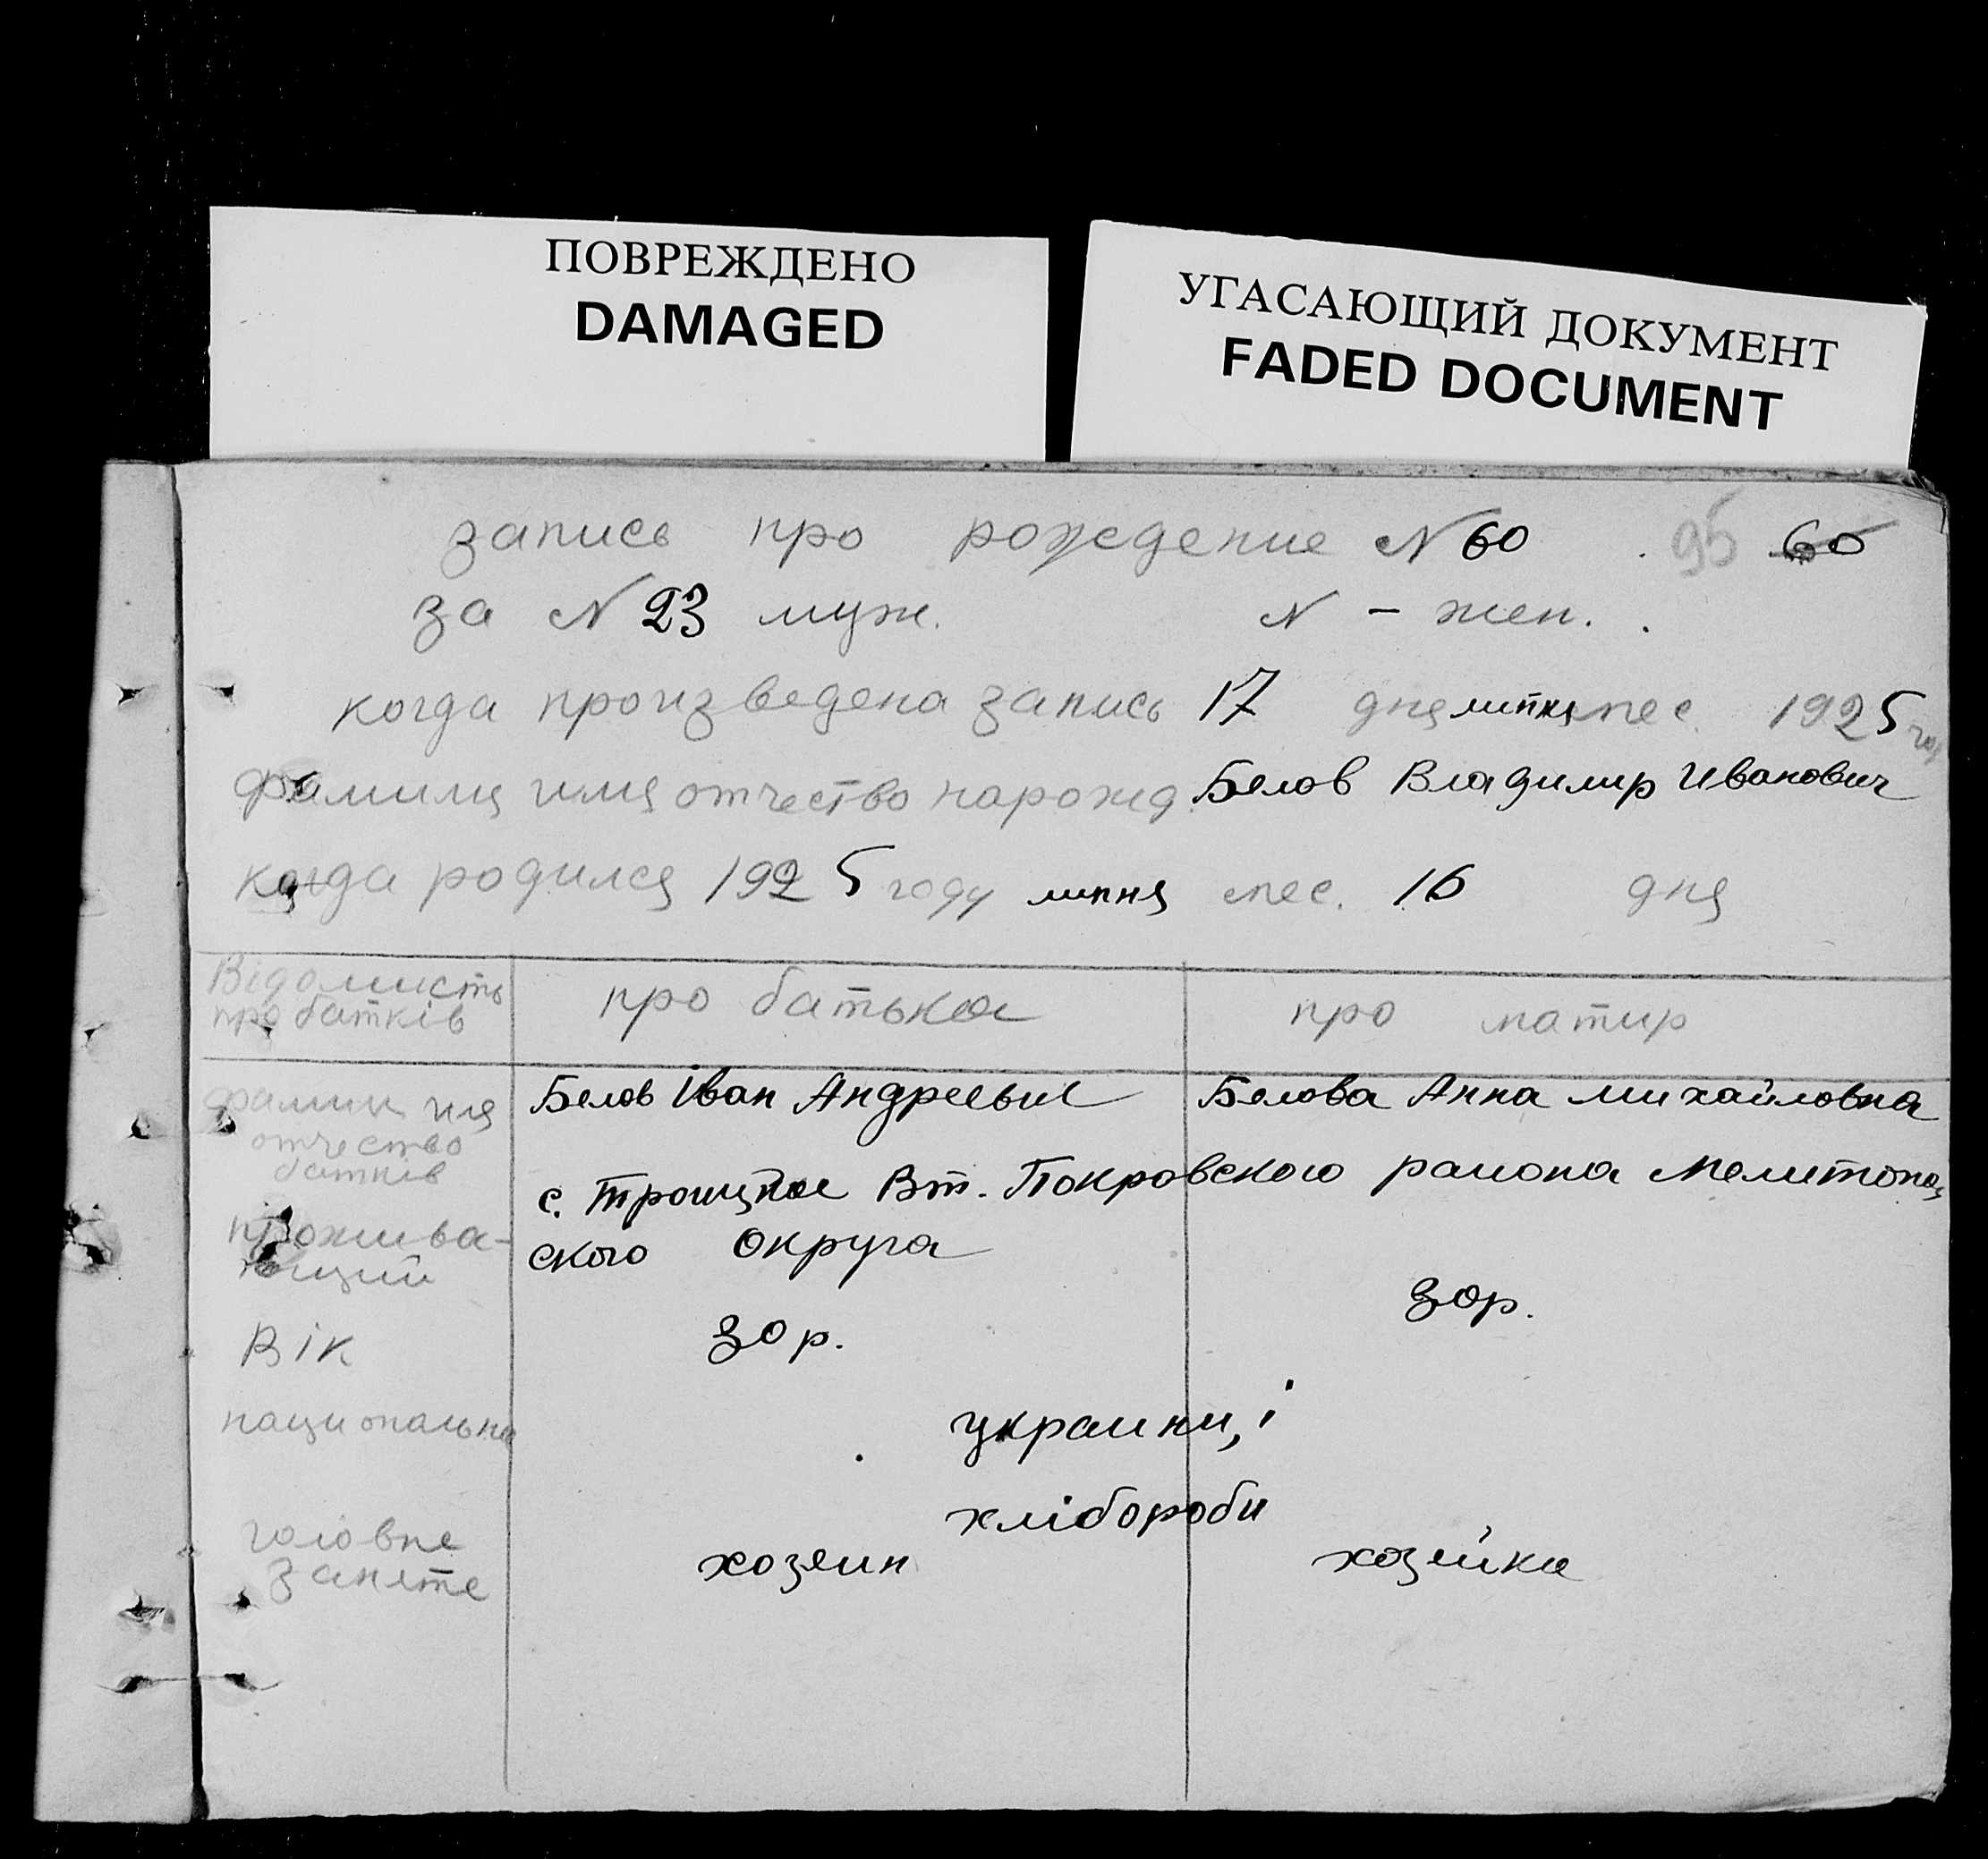 ПОВРЕЖДЕНО
DAMAGED
УГАСАЮЩИЙ ДОКУМЕНТ
FADED DOCUMENT
запись про рождение N 60 . 95 60
за N 23 муж. N – жен. .
когда произведена запись 17 дня липня мес. 1925 год
фамилия имя отчество нарожд. Белов Владимир Иванович
когда родился 1925 году липня мес. 16 дня
Відомисть про батька про матир
про батків
фамил имя Белов Іван Андреевич Белова Анна Михайловна
отчество
батків
прожива- с. Троицкое Вт. Покровского района Мелитопол
ющий ского округа
Вік 30 р. 30 р.
национальна украини, і
хлібороби
головне хозяин хозяйка
заняте